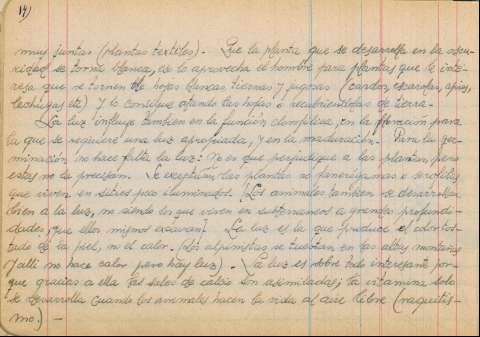 14)
muy juntas (plantas textiles). Que la planta que se desarrolla en la oscu-
ridad se torna blanca, de lo aprovecha el hombre para plantas que le inte-
resa que se tornen de hojas blancas tiernas y jugosas (cardos, escarolas, apios,
lechugas etc) y lo consigue atando las hojas o recubriendolas de tierra.
La luz influye tambien en la función clorofílica, en la floración para
la que se requiere una luz apropiada, y en la maduración. Para la ger-
minación no hace falta la luz: No es que perjudique a las plantas, pero
estas no la precisan. Se exceptúan las plantas
que viven en sitios poco iluminados. Los animales tambien se desarrollan
bien a la luz, no siendo los que viven en subterraneos a grandes profundi-
dades, que ellos mismos excavan. La luz es la que produce el color tos-
tado de la piel, no el calor. (Los alpinistas se tuestan en las altas montañas
y alli no hace calor pero hay luz). La luz es sobre todo interesante por-
que gracias a ella las sales de calcio son asimiladas; la vitamina solo
se desarrolla cuando los animales hacen la vida al aire libre (raquitis-
mo.) —